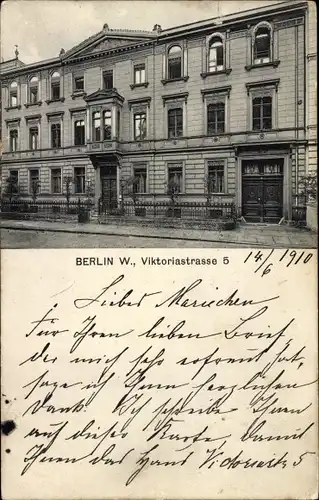 BERLIN W., Viktoriastrasse 5
14/6 1910
Liebes Mariechen
Für Ihren lieben Brief,
der mich sehr erfreut hat,
sage ich Ihnen herzlichen
Dank. Ich schreibe Ihnen
auf dieser Karte, damit
Ihnen das Haus Victoriastr 5